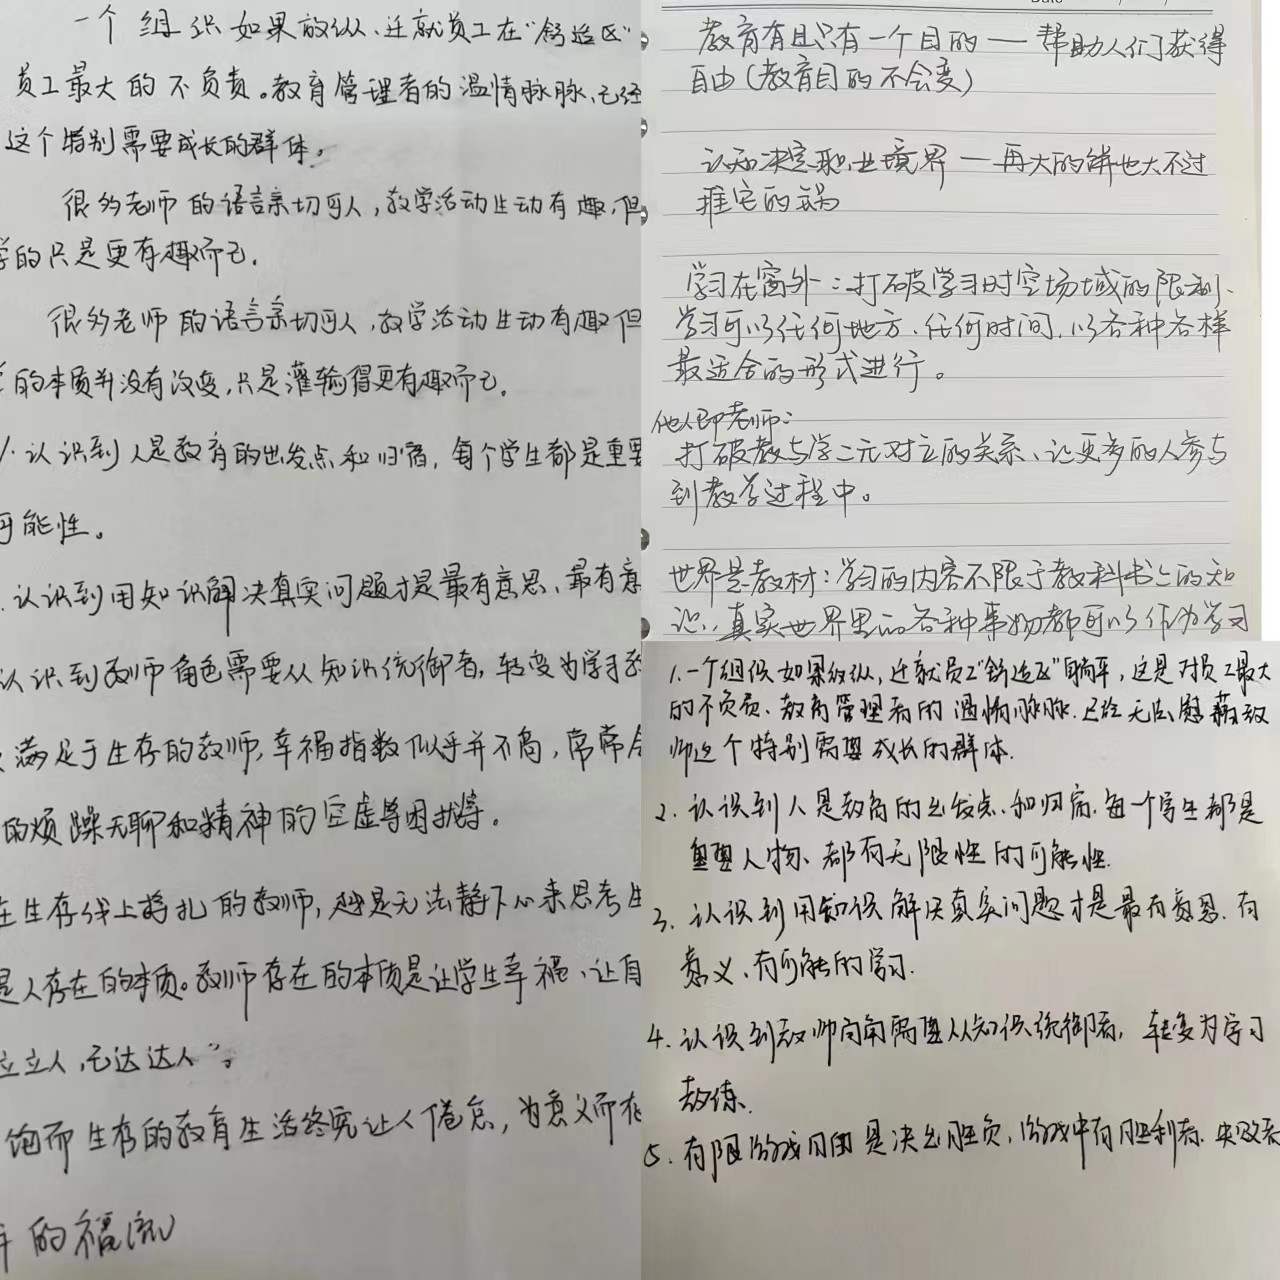 一个组织如果放纵、迁就员工在“舒适区”
员工最大的不负责。教育管理者的温情脉脉，已经
这个特别需要成长的群体。
很多老师的语言亲切可人，教学活动生动有趣，但
学的只是更有趣而已。
很多老师的语言亲切可人，教学活动生动有趣但
的本质并没有改变，只是灌输得更有趣而已。
1.认识到人是教育的出发点和归宿，每个学生都是重要
可能性。
.认识到用知识解决真实问题才是最有意思、最有意
认识到教师角色需要从知识统御者，转变为学习教
满足于生存的教师，幸福指数似乎并不高，常常会
的烦躁无聊和精神的空虚等困扰等。
在生存线上挣扎的教师，越是无法静下心来思考生
是人存在的本质。教师存在的本质是让学生幸福、让自
立立人，己达达人”。
饱而生存的教育生活终究让人倦怠，为意义而存
的福流
教育有且只有一个目的——帮助人们获得
自由（教育目的不会变）
认知决定职业境界——再大的饼也大不过
推它的锅
学习在窗外：打破学习时空场域的限制、
学习可以任何地方、任何时间，以各种各样
最适合的形式进行。
他人即老师：
打破教与学二元对立的关系、让更多的人参与
到教学过程中。
世界是教材：学习的内容不限于教科书上的知
识，真实世界里的各种事物都可以作为学习
1.一个组织如果放纵，迁就员工“舒适区”躺平，这是对员工最大
的不负责、教育管理者的温情脉脉.已经无法慰藉教
师这个特别需要成长的群体.
2.认识到人是教育的出发点、和归宿.每一个学生都是
重要人物、都有无限性的可能性.
3.认识到用知识解决真实问题才是最有意思.有
意义、有可能的学习.
4.认识到教师向角需要从知识统御者，转变为学习
教练.
5.有限游戏目的是决出胜负，游戏中有胜利者.失败者